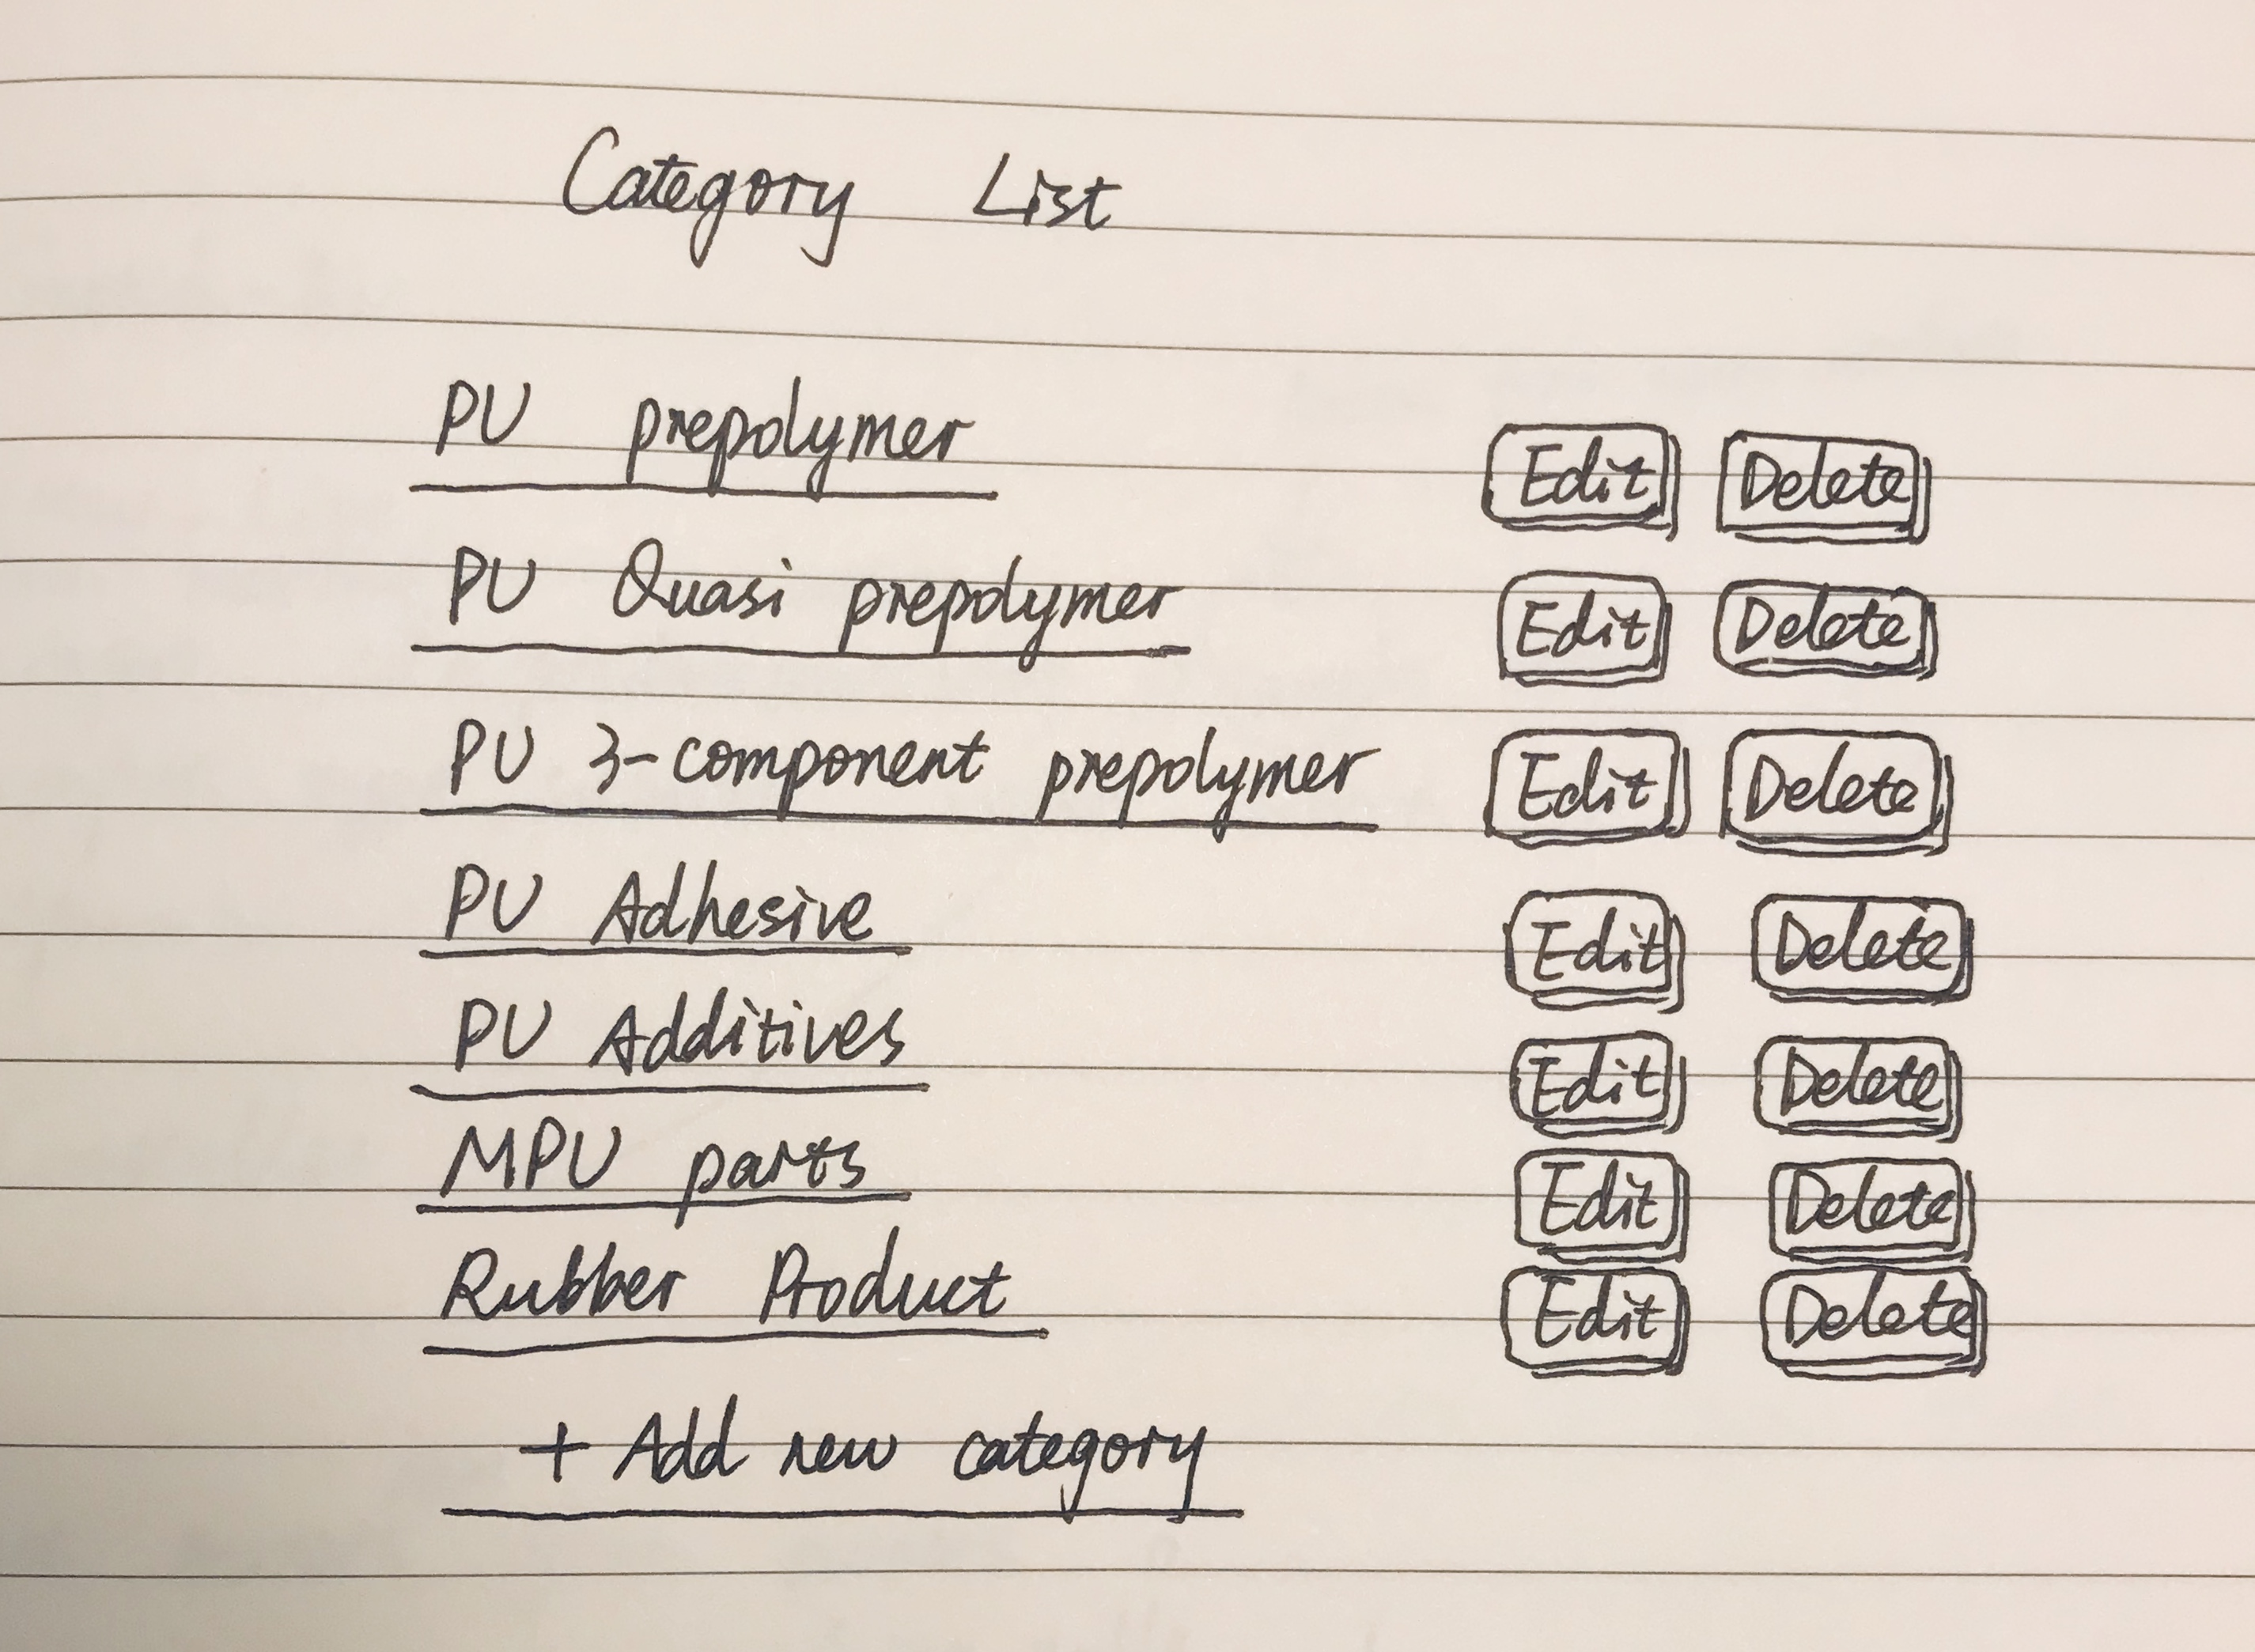 Category List
PU prepolymer Edit Delete
PU Quasi prepolymer Edit Delete
PU 3-component prepolymer Edit Delete
PU Adhesive Edit Delete
PU Additives Edit Delete
MPU parts Edit Delete
Rubber Product Edit Delete
+ Add new category